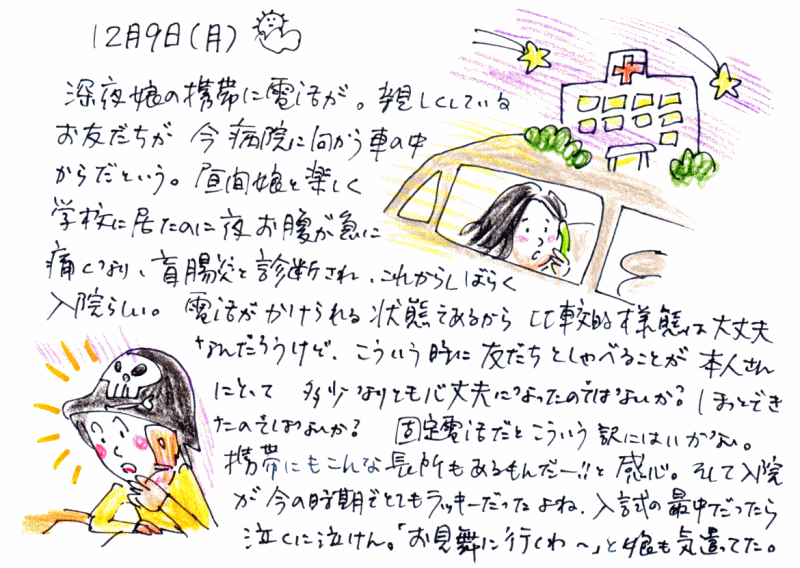 12月9日(月)
深夜娘の携帯に電話が。親しくしている
お友だちが 今病院に向かう車の中
からだという。昼間娘と楽しく
学校に居たのに夜お腹が急に
痛くなり、盲腸炎と診断され、これからしばらく
入院らしい。 電話がかけられる状態であるから 比較的様態は大丈夫
なんだろうけど、こういう時に友だちとしゃべることが本人さん
にとって 多少なりとも心丈夫になったのではないか?ほっとでき
たのではないか? 固定電話だとこういう訳にはいかない。
携帯にもこんな長所もあるもんだー!!と感心。そして入院
が今の時期でとてもラッキーだったよね、入試の最中だったら
泣くに泣けん。「お見舞に行くわ~」と娘も気遣ってた。